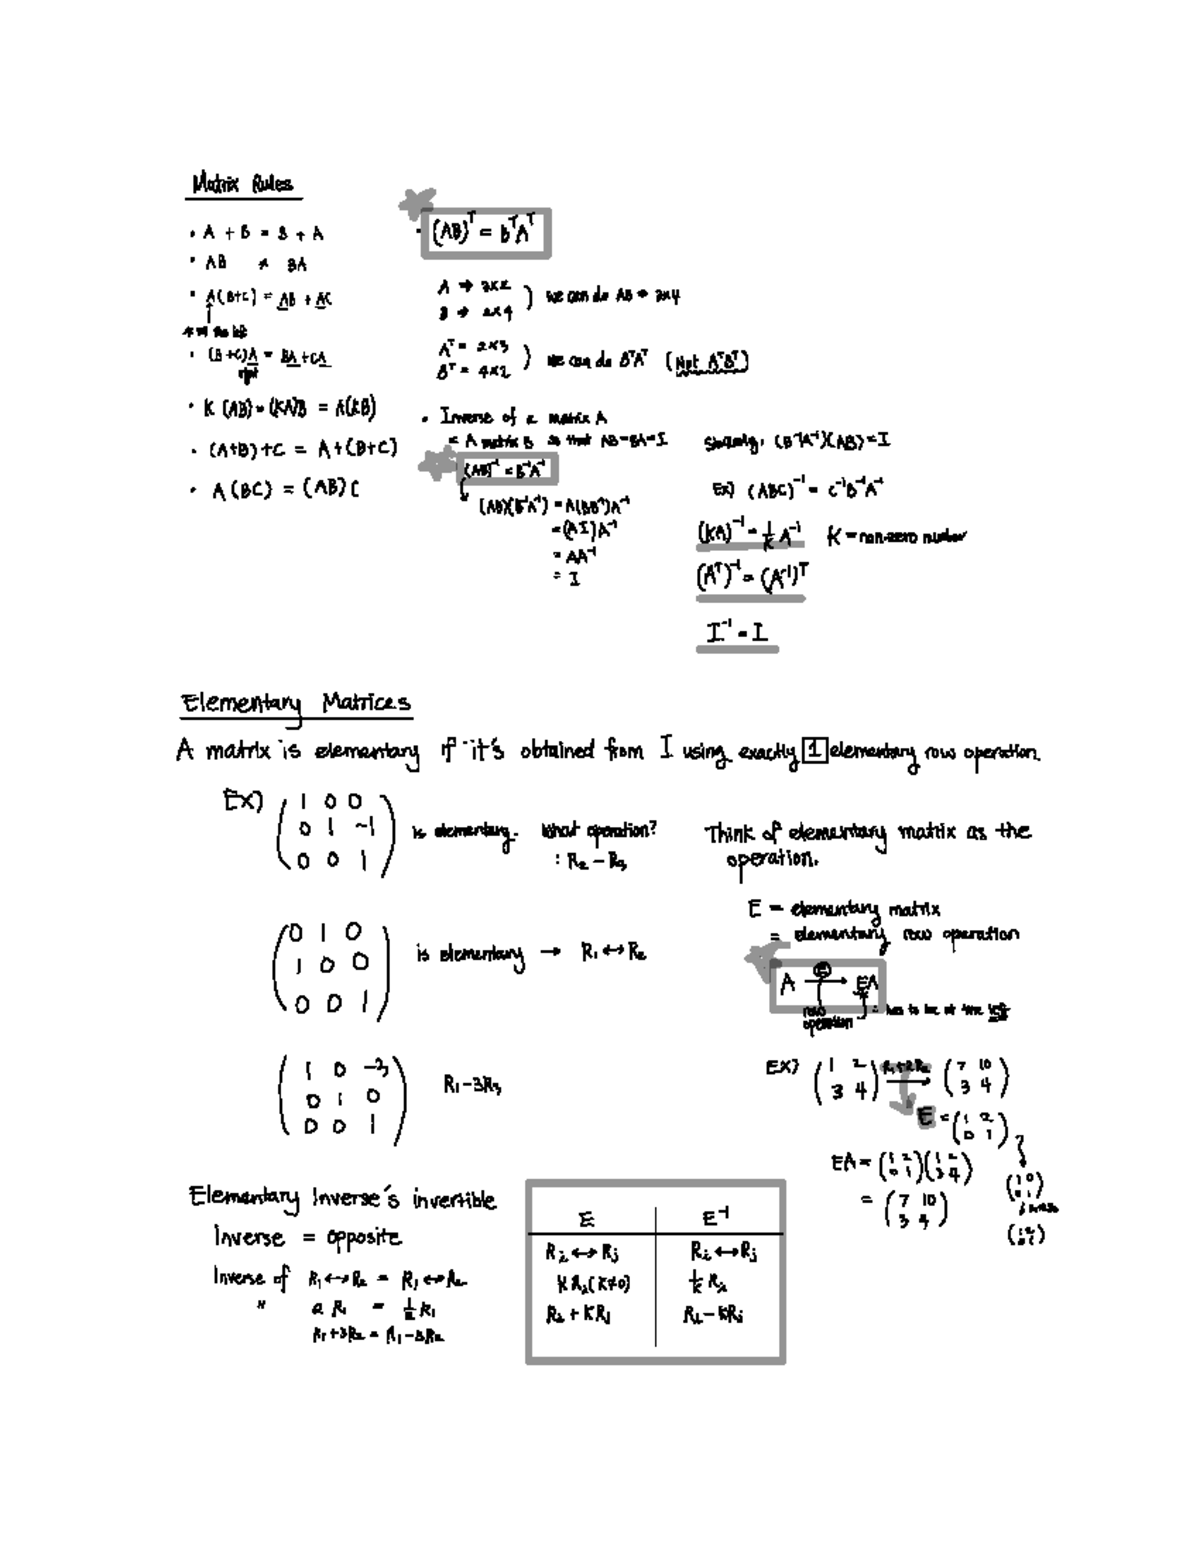 Matrix Rules
• A + B = B + A
• AB ≠ BA
• A(B+C) = AB + AC
• (B+C)A = BA + CA
right
• K(AB) = (KA)B = A(KB)
• (A+B)+C = A+(B+C)
• A(BC) = (AB)C
• (AB)ᵀ = bᵀAᵀ
A → 3x2
B → 2x4
) we can do AB → 3x4
Aᵀ = 2x3
Bᵀ = 4x2
) we can do BᵀAᵀ (Not AᵀBᵀ)
• Inverse of a matrix A
= A matrix B so that AB=BA=I
(AB)⁻¹ = B⁻¹A⁻¹
(AB)(B⁻¹A⁻¹) = A(BB⁻¹)A⁻¹
= (AI)A⁻¹
= AA⁻¹
= I
Similarly, (B⁻¹A⁻¹)(AB) = I
Ex) (ABC)⁻¹ = C⁻¹B⁻¹A⁻¹
(KA)⁻¹ = 1/K A⁻¹ K = non-zero number
(Aᵀ)⁻¹ = (A⁻¹)ᵀ
I⁻¹ = I
Elementary Matrices
A matrix is elementary if it's obtained from I using exactly 1 elementary row operation.
Ex)
1 0 0
0 1 -1
0 0 1
is elementary. What operation?
: R₂ - R₃
0 1 0
1 0 0
0 0 1
is elementary → R₁ ↔ R₂
1 0 -3
0 1 0
0 0 1
R₁-3R₃
Think of elementary matrix as the
operation.
E = elementary matrix
= elementary row operation
A →(E) EA
row
operation
: has to be at the left
EX) (1 2 / 3 4) R₁+2R₂ → (7 10 / 3 4)
E = (1 2 / 0 1)
EA = (1 2 / 0 1)(1 2 / 3 4)
= (7 10 / 3 4)
(1 0 / 0 1)
Elementary Inverse's invertible
Inverse = opposite
Inverse of R₁ ↔ R₂ = R₁ ↔ R₂
" 2 R₁ = 1/2 R₁
R₁+3R₂ = R₁-3R₂
E E⁻¹
Rᵢ ↔ Rⱼ Rᵢ ↔ Rⱼ
KRᵢ (K≠0) 1/K Rᵢ
Rᵢ + KRⱼ Rᵢ - KRⱼ